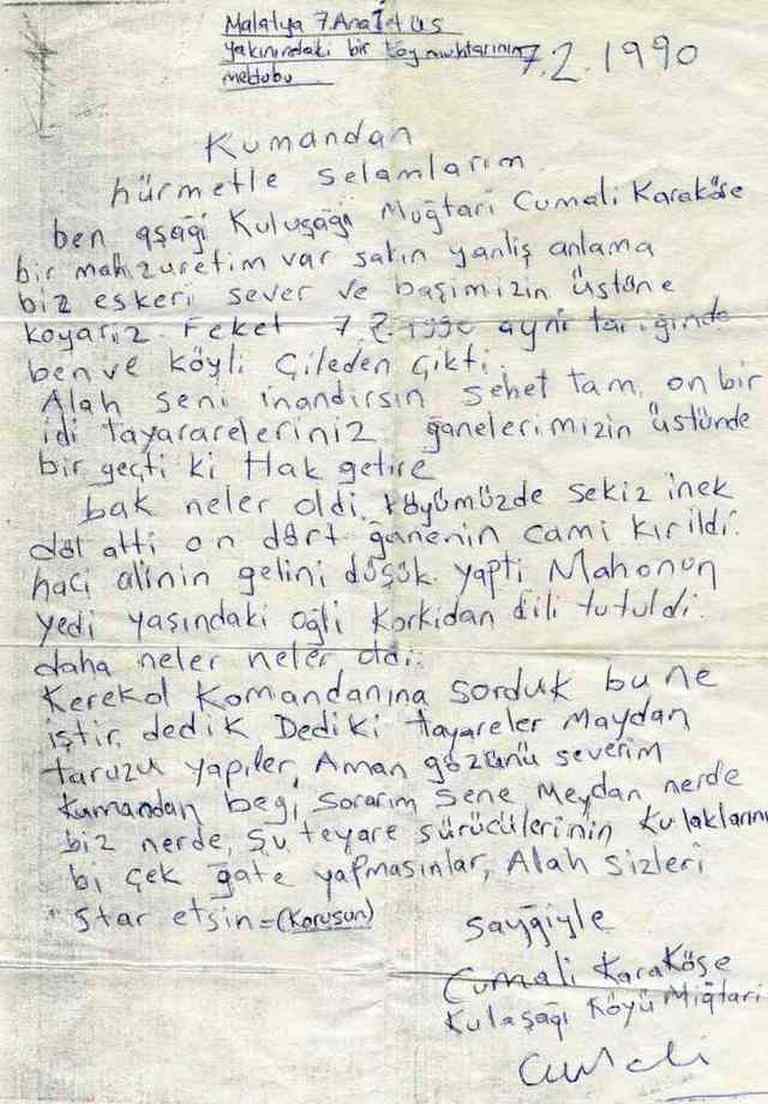 Malatya 7. Ana Jet Üs
yakınındaki bir köy muhtarının
mektubu
7.2.1990
Kumandan
hürmetle selamlarım
ben aşaği Kuluşaği Muğtari Cumali Karaköse
bir mahzuretim var sakın yanliş anlama
biz eskeri sever ve başimizin üstüne
koyariz. Feket 7.2.1990 ayni tariğinde
ben ve köyli çileden çıkti.
Alah seni inandirsın sehet tam on bir
idi tayarareleriniz ğanelerimizin üstünde
bir geçti ki Hak getire
bak neler oldi. köyümüzde sekiz inek
döl atti on dört ğanenin cami kırildi.
haci alinin gelini düşük yapti Mahonun
yedi yaşındaki oğli korkidan dili tutuldi.
daha neler neler oldi.
Kerekol komandanına sorduk bu ne
iştir, dedik Dediki tayareler Maydan
taruzu yapiler, Aman gözünü severim
kumandan begi, sorarım sene meydan nerde
biz nerde, şu teyare sürücülerinin kulaklarını
bi çek ğate yapmasınlar, Alah sizleri
star etsin=(Korusun)
sayğiyle
Cumali Karaköse
Kulaşaği Köyü Miğtari
Cumali